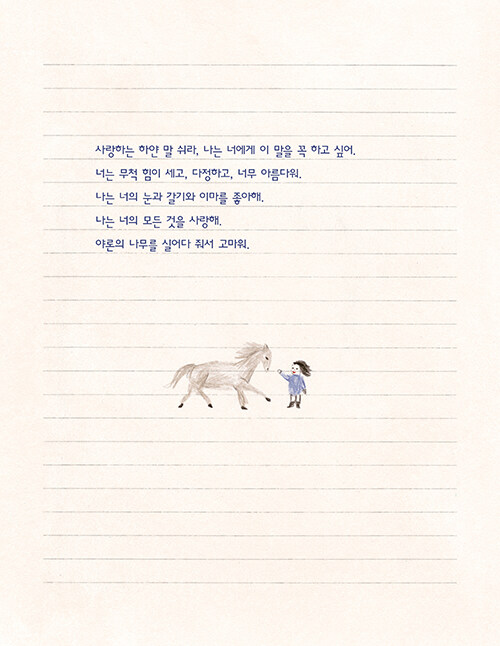 사랑하는 하얀 말 쉬라, 나는 너에게 이 말을 꼭 하고 싶어.
너는 무척 힘이 세고, 다정하고, 너무 아름다워.
나는 너의 눈과 갈기와 이마를 좋아해.
나는 너의 모든 것을 사랑해.
야론의 나무를 실어다 줘서 고마워.